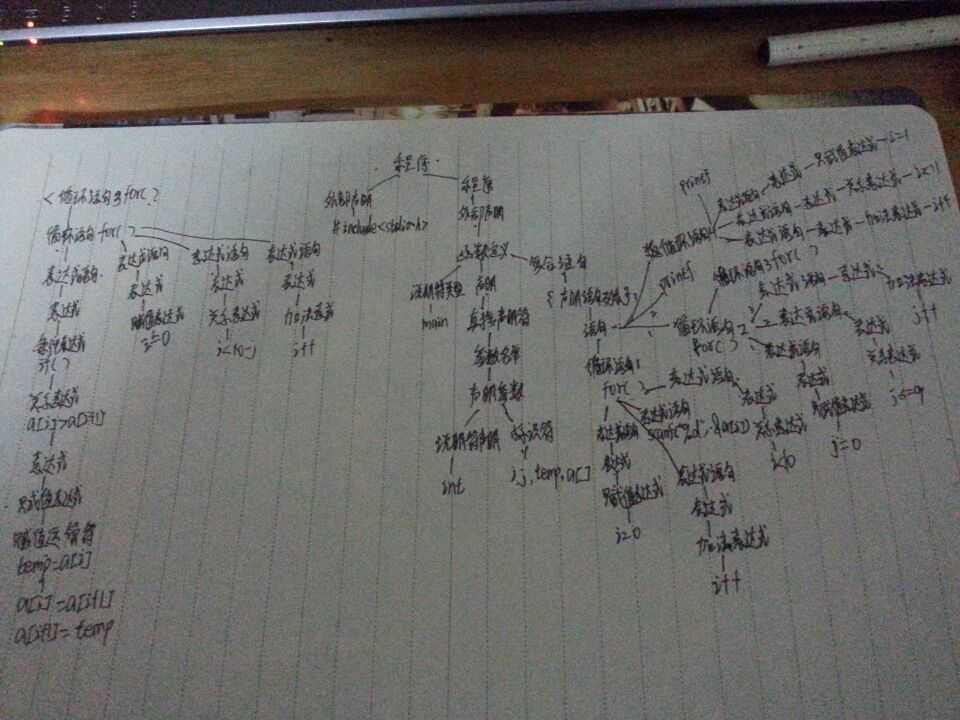 程序
外部声明
#include<stdio.h>
程序
外部声明
函数定义
说明符类型
main
声明
直接声明符
参数名单
声明参数
说明符声明
int
标识符
i,j,temp,a[]
复合语句
{声明语句列表}
语句
循环语句1
for( )
表达式语句
表达式
赋值表达式
i=0
表达式语句
scanf("%d",&a[i])
表达式语句
表达式
关系表达式
i<10
表达式语句
表达式
加法表达式
i++
printf
循环语句2
for( )
表达式语句
表达式
赋值表达式
j=0
表达式语句
表达式
关系表达式
j<=9
表达式语句
表达式
加法表达式
j++
循环语句3for( )
循环语句
printf
表达式语句
表达式
赋值表达式
i=1
表达式语句
表达式
关系表达式
i<11
表达式语句
表达式
加法表达式
i++
<循环语句3for( )
循环语句for( )
表达式语句
表达式
赋值表达式
i=0
表达式语句
表达式
关系表达式
i<10-j
表达式语句
表达式
加法表达式
i++
表达式语句
表达式
条件表达式
if( )
关系表达式
a[i]>a[i+1]
表达式
赋值表达式
赋值运算符
temp=a[i]
a[i]=a[i+1]
a[i+1]=temp